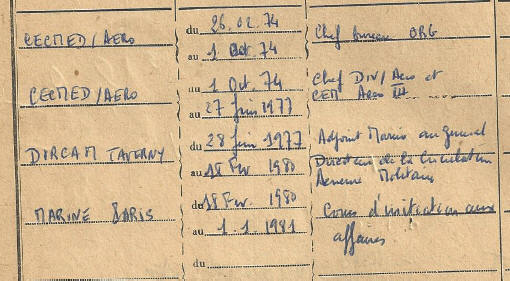 CECMED/AERO du 26.02.74 Chef bureau ORG
au 1 Oct. 74
CECMED/AERO au 1 Oct. 74 Chef DIV/Aero et
au 27 Juin 1977 CEM Aero III
DIRCAM TAVERNY du 28 Juin 1977 Adjoint Marine au général
au 18 Fev 1980 Directeur de la Circulation
Aerienne Militaire
MARINE PARIS du 18 Fev. 1980 Cours d'initiation aux
au 1.1.1981 affaires
du